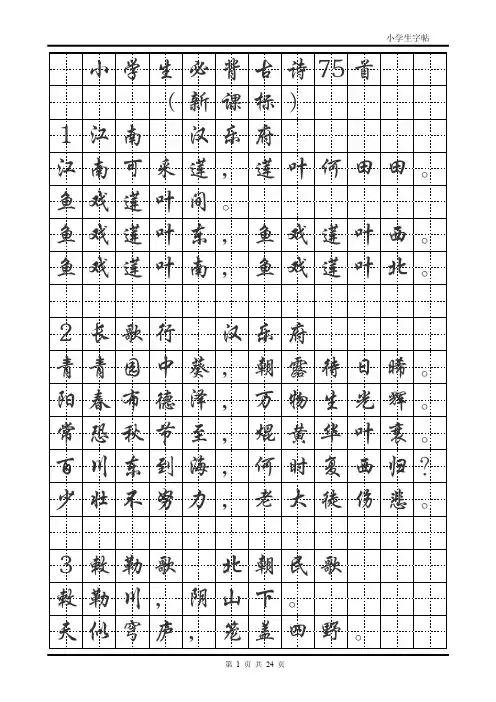 小学生字帖
小学生必背古诗75首
（新课标）
1江南 汉乐府
江南可来莲，莲叶何田田。
鱼戏莲叶间。
鱼戏莲叶东，鱼戏莲叶西。
鱼戏莲叶南，鱼戏莲叶北。
2长歌行 汉乐府
青青园中葵，朝露待日晞。
阳春布德泽，万物生光辉。
常恐秋节至，焜黄华叶衰。
百川东到海，何时复西归？
少壮不努力，老大徒伤悲。
3敕勒歌 北朝民歌
敕勒川，阴山下。
天似穹庐，笼盖四野。
第 1 页 共 24 页